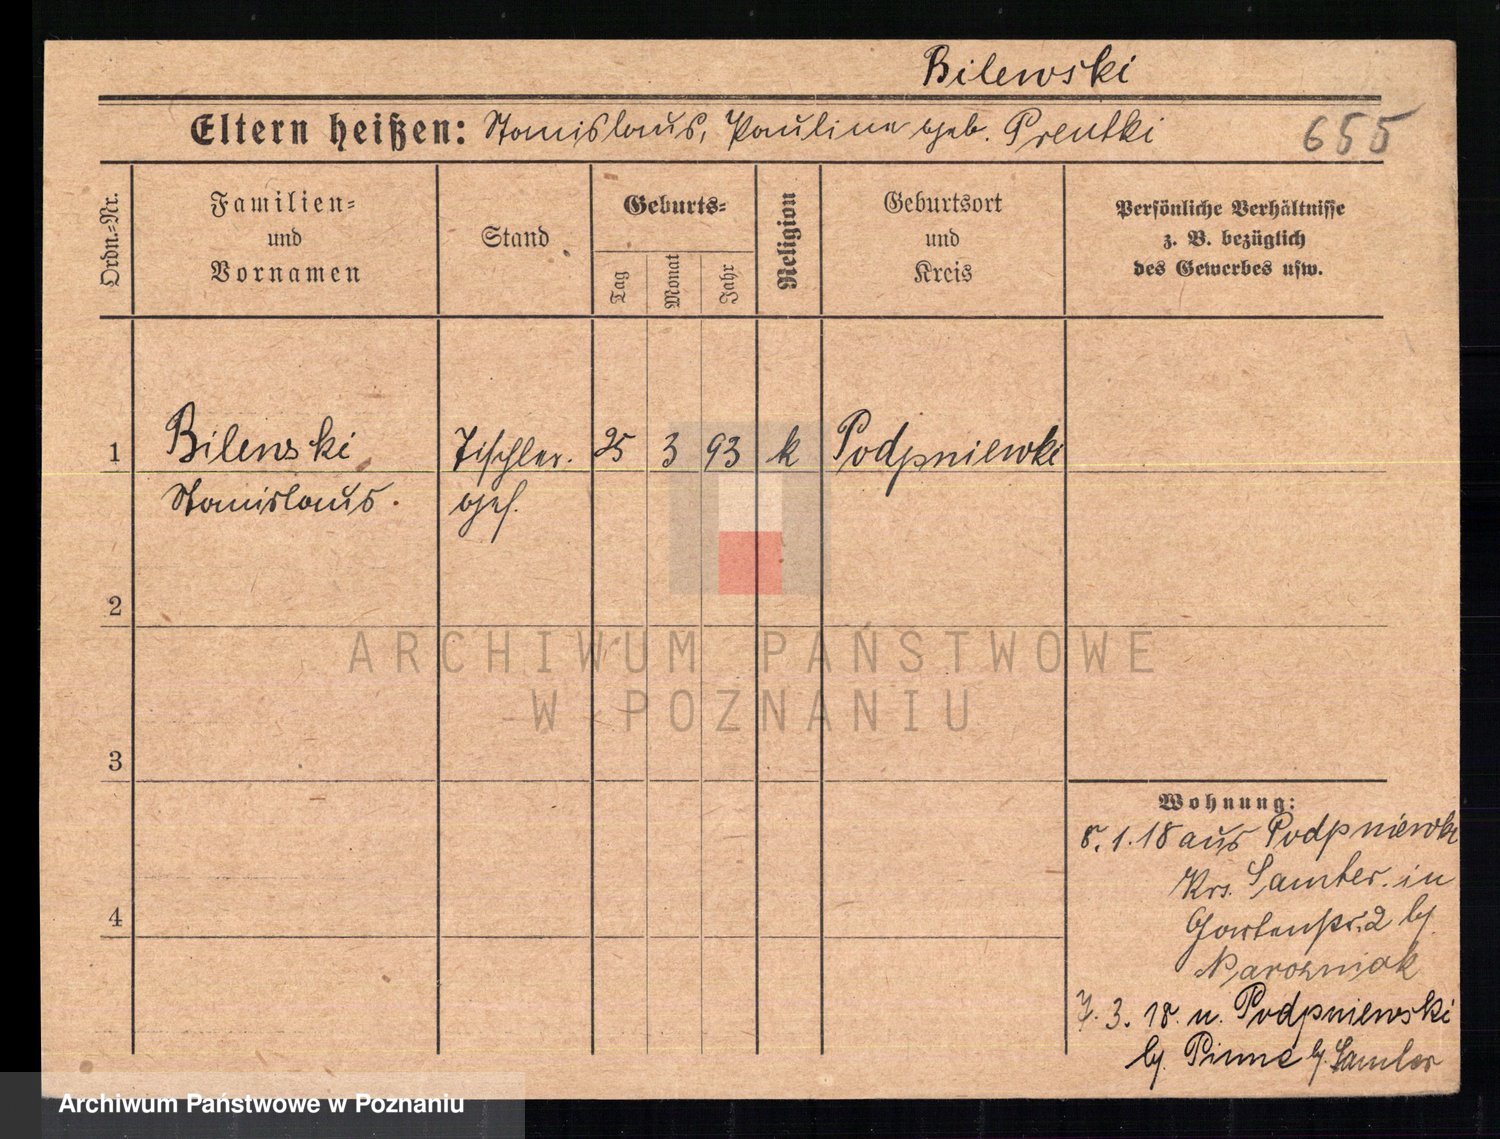 Bilewski
Eltern heißen: Stanislaus, Pauline geb. Prentki
655
Ordn.=Nr.
Familien=
und
Vornamen
Stand
Geburts=
Tag
Monat
Jahr
Religion
Geburtsort
und
Kreis
Persönliche Verhältnisse
z. B. bezüglich
des Gewerbes usw.
1 Bilewski Tischler. 25 3 93 k Podpniewki
Stanislaus. ges.
2
3
4
ARCHIWUM PAŃSTWOWE
W POZNANIU
Wohnung:
8. 1. 18 aus Podpniewki
Krs. Samter. in
Gartenstr. 2 bj.
Narozniak
7. 3. 18. n. Podpniewski
bj. Pinne bj. Samter
Archiwum Państwowe w Poznaniu